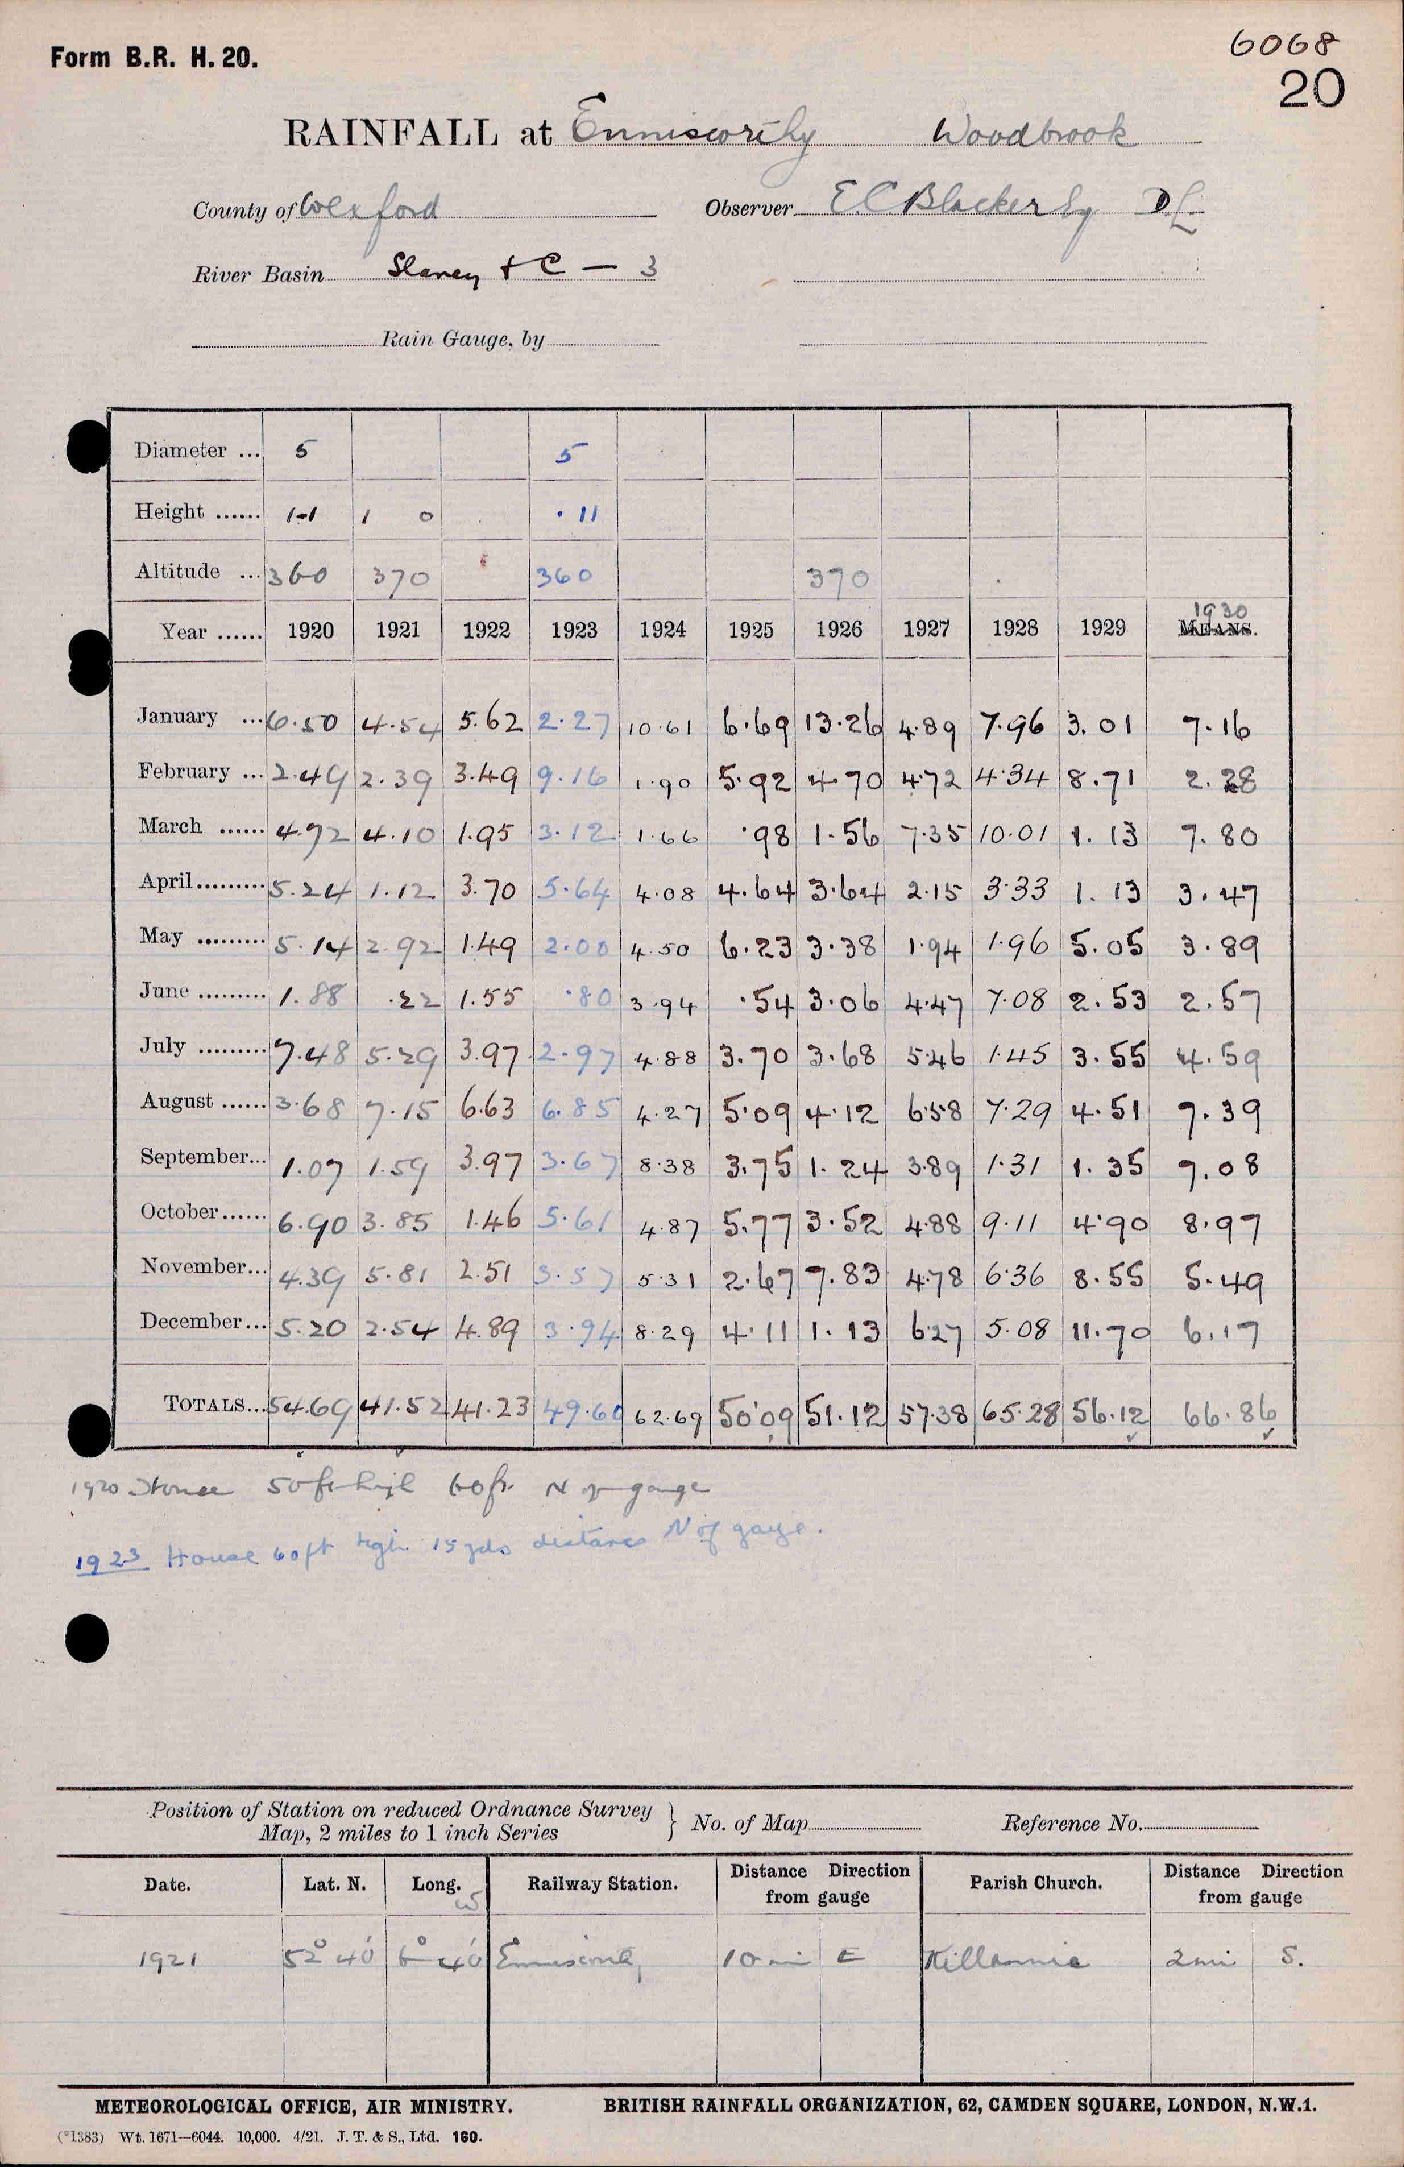 Form B.R. H. 20.
6068
20
RAINFALL at Enniscorthy Woodbrook
County of Wexford Observer E.C. Blacker Esq D.L.
River Basin Slaney + C — 3
Rain Gauge, by
Diameter ... 5 5
Height ...... 1-1 1 0 · 11
Altitude ... 360 370 360 370
1930
Year ...... 1920 1921 1922 1923 1924 1925 1926 1927 1928 1929 MEANS.
January ... 6.50 4.54 5.62 2.27 10.61 6.69 13.26 4.89 7.96 3.01 7.16
February ... 2.49 2.39 3.49 9.16 1.90 5.92 4.70 4.72 4.34 8.71 2.28
March ...... 4.72 4.10 1.95 3.12 1.66 .98 1.56 7.35 10.01 1.13 7.80
April......... 5.24 1.12 3.70 5.64 4.08 4.64 3.64 2.15 3.33 1.13 3.47
May ......... 5.14 2.92 1.49 2.00 4.50 6.23 3.38 1.94 1.96 5.05 3.89
June ......... 1.88 .22 1.55 .80 3.94 .54 3.06 4.47 7.08 2.53 2.57
July ......... 7.48 5.29 3.97 2.97 4.88 3.70 3.68 5.46 1.45 3.55 4.59
August ...... 3.68 7.15 6.63 6.85 4.27 5.09 4.12 6.58 7.29 4.51 7.39
September... 1.07 1.59 3.97 3.67 8.38 3.75 1.24 3.89 1.31 1.35 7.08
October...... 6.90 3.85 1.46 5.61 4.87 5.77 3.52 4.88 9.11 4.90 8.97
November... 4.39 5.81 2.51 3.57 5.31 2.67 7.83 4.78 6.36 8.55 5.49
December... 5.20 2.54 4.89 3.94 8.29 4.11 1.13 6.27 5.08 11.70 6.17
TOTALS... 54.69 41.52 41.23 49.60 62.69 50.09 51.12 57.38 65.28 56.12 66.86
1920 House 50 ft high 60 ft N of gauge
1923 House 60 ft high 15 yds distance N of gauge.
Position of Station on reduced Ordnance Survey Map, 2 miles to 1 inch Series } No. of Map Reference No.
Date. Lat. N. Long. W Railway Station. Distance Direction from gauge Parish Church. Distance Direction from gauge
1921 52° 40' 6° 40' 10 mi E 2 mi S.
METEOROLOGICAL OFFICE, AIR MINISTRY. BRITISH RAINFALL ORGANIZATION, 62, CAMDEN SQUARE, LONDON, N.W.1.
(*1383) Wt. 1671—6044. 10,000. 4/21. J. T. & S., Ltd. 160.